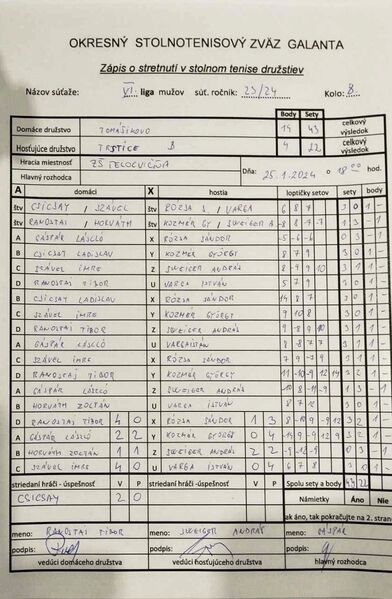 OKRESNÝ STOLNOTENISOVÝ ZVÄZ GALANTA
Zápis o stretnutí v stolnom tenise družstiev
Názov súťaže: VI. liga mužov súť. ročník: 23/24 Kolo: 8.
Body Sety
Domáce družstvo TOMÁŠIKOVO 14 43 celkový výsledok
Hosťujúce družstvo TRSTICE B 4 22 celkový výsledok
Hracia miestnosť ZŠ TELOCVIČŇA Dňa: 25.1.2024 o 18 00 hod.
Hlavný rozhodca
A domáci X hostia loptičky setov sety body
štv CSICSAY / SZÁVEL štv RÓZSA S / VARGA 6 8 7 3 0 1 -
štv RANOSTAJ / HORVÁTH štv KOZMÉR GY /
A GÁSPÁR LÁSZLÓ X RÓZSA SÁNDOR -5 -6 -6 0 3 - 1
B CSICSAY LADISLAV Y KOZMÉR GYÖRGY 8 7 9 3 0 1 -
C SZÁVEL IMRE Z ZWEIGER ANDRÁS 8 -9 9 10 3 1 1 -
D RANOSTAJ TIBOR U VARGA IŠTVÁN
B CSICSAY LADISLAV X RÓZSA SÁNDOR 14 8 7 3 0 1 -
C SZÁVEL IMRE Y KOZMÉR GYÖRGY 9 10 8 3 0 1 -
D RANOSTAJ TIBOR Z ZWEIGER ANDRÁS 9 -8 9 10 3 1 1 -
A GÁSPÁR LÁSZLÓ U VARGA IŠTVÁN
C SZÁVEL IMRE X RÓZSA SÁNDOR
D RANOSTAJ TIBOR Y KOZMÉR GYÖRGY 11 -10 -9 12 14 3 2 1 -
A GÁSPÁR LÁSZLÓ Z ZWEIGER ANDRÁS
B HORVÁTH ZOLTÁN U VARGA IŠTVÁN
D RANOSTAJ TIBOR 4 0 X RÓZSA SÁNDOR 1 3
A GÁSPÁR LÁSZLÓ 2 2 Y KOZMÉR GYÖRGY 0 4
B HORVÁTH ZOLTÁN 1 1 Z ZWEIGER ANDRÁS 2 2
C SZÁVEL IMRE 4 0 U VARGA IŠTVÁN 0 4 6 7 8 3 0 1 -
striedaní hráči - úspešnosť V P striedaní hráči - úspešnosť V P Spolu sety a body 43 22
CSICSAY 2 0 Námietky Áno Nie
ak áno, tak pokračujte na 2. stran
meno: RANOSTAJ TIBOR meno: ZWEIGER ANDRÁS meno: GÁSPÁR
podpis: podpis: podpis:
vedúci domáceho družstva vedúci hosťujúceho družstva hlavný rozhodca